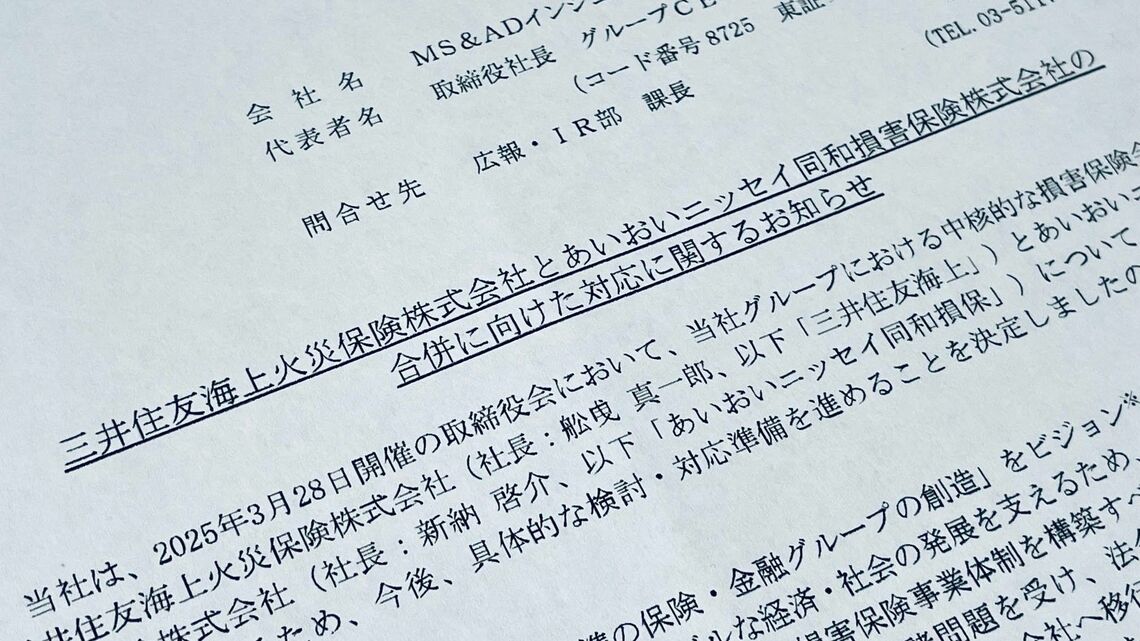 会社名 MS&ADインシュ
代表者名 取締役社長 グループCE
(コード番号 8725 東証
問合せ先 広報・IR部 課長
(TEL.03-511
三井住友海上火災保険株式会社とあいおいニッセイ同和損害保険株式会社の
合併に向けた対応に関するお知らせ
当社は、2025年3月28日開催の取締役会において、当社グループにおける中核的な損害保険会
井住友海上火災保険株式会社(社長:舩曵 真一郎、以下「三井住友海上」)とあいおいニ
株式会社(社長:新納 啓介、以下「あいおいニッセイ同和損保」)について
ため、今後、具体的な検討・対応準備を進めることを決定しましたの
準の保険・金融グループの創造」をビジョン※
ルな経済・社会の発展を支えるため、
害保険事業体制を構築すべ
問題を受け、法
会社へ移行